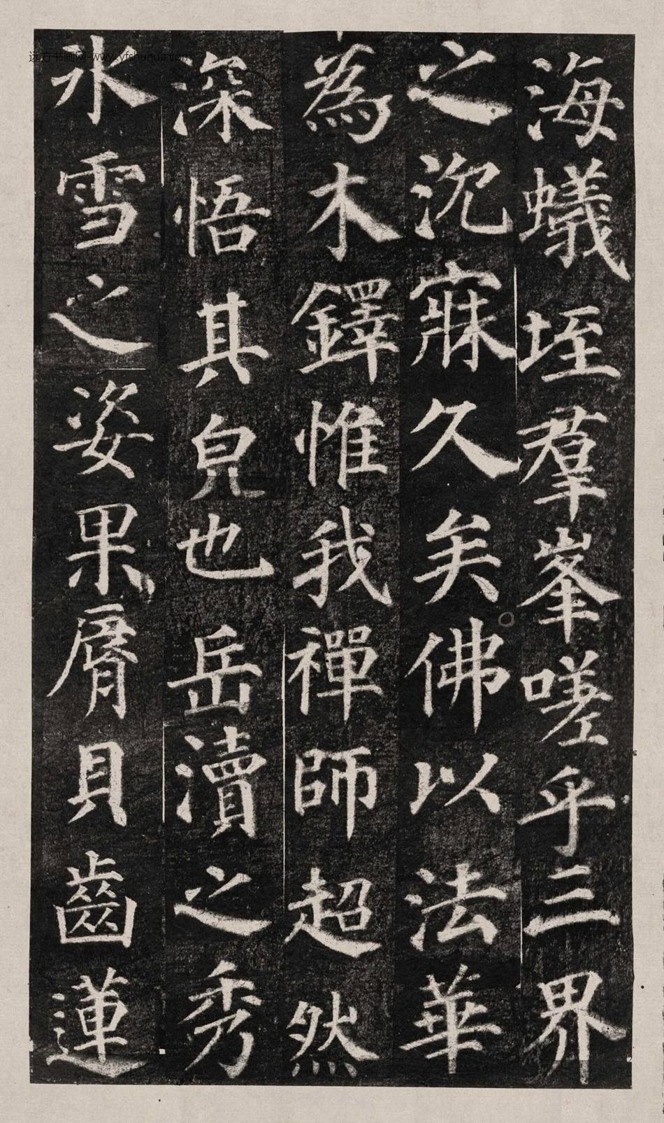 海蟻垤羣峯嗟乎三界
之沉寐久矣佛以法華
為木鐸惟我禪師超然
深悟其皃也岳瀆之秀
氷雪之姿果脣貝齒蓮